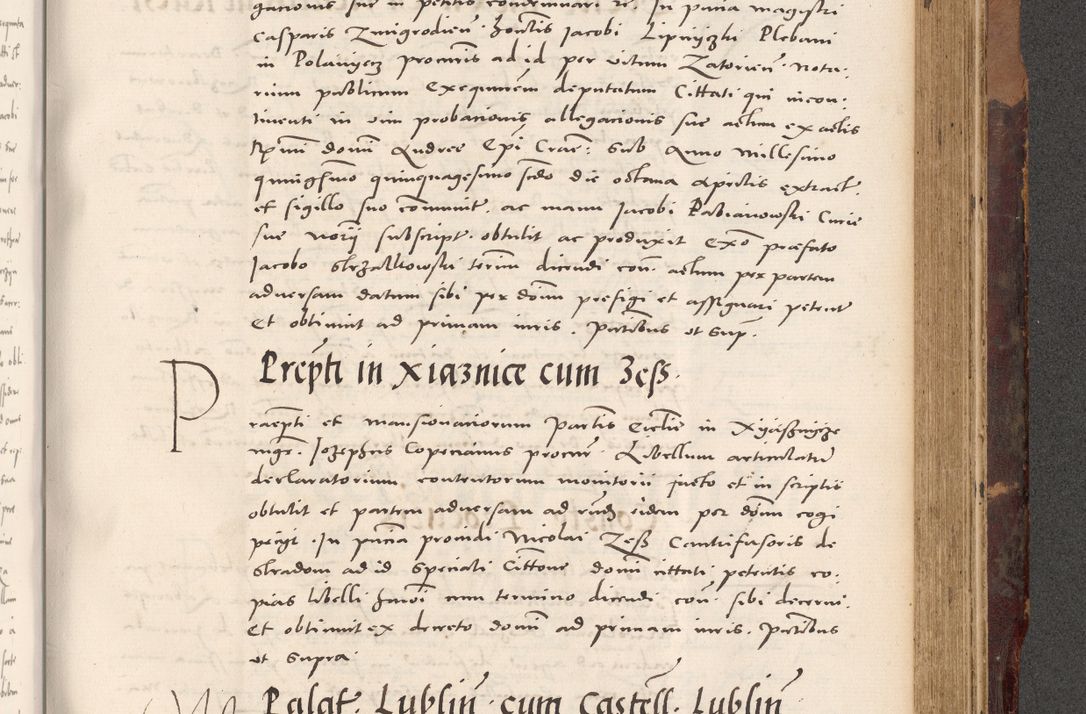 gationis sue in petitis condemnari etc. In pntia magistri
Casparis Zmigrodien. hontis Jacobi Lipnyzki Plebani
in Polanyecz procuris ad id per vitum Zatorien. nota-
rium publicum exequutem deputatum cittati qui incon-
tinenti in vim probationis allegationis sue actum ex actis
Rmi domi Andree Epi Crac. sub Anno Millesimo
quingmo quinquagesimo scdo die octava Aprilis extract.
et sigillo suo communit. ac manu Jacobi Pabianowski Curie
sue norij subscript. obtulit ac produxit Exo praefato
Jacobo Strzalkowski terim dicendi con. actum per partem
adversam datum sibi per dom prefigi et assignari petent
Et obtinuit ad primam iuris. Partibus ut sup.
Prepti in Xiaznice cum Zess.
Praepti et mansionariorum Partis Ecclie in Xyaszniyze
mgr. Jozephus Copecianus procur. Libellum articulatu
declaratorium contentorum monitorii facto et in scriptis
obtulit et partem adversam ad rndm eidem per dom cogi
petijt. In pntia providi Nicolai Zess Cantrifusoris de
Stradom ad id speciali cittone domi cittati petentis co-
pias libelli hmoi cum termino dicendi con. sibi decerni.
Et obtinuit ex decreto domi ad primam iuris. Partibus
ut supra.
Palat. Lublin. cum Castell. Lublin